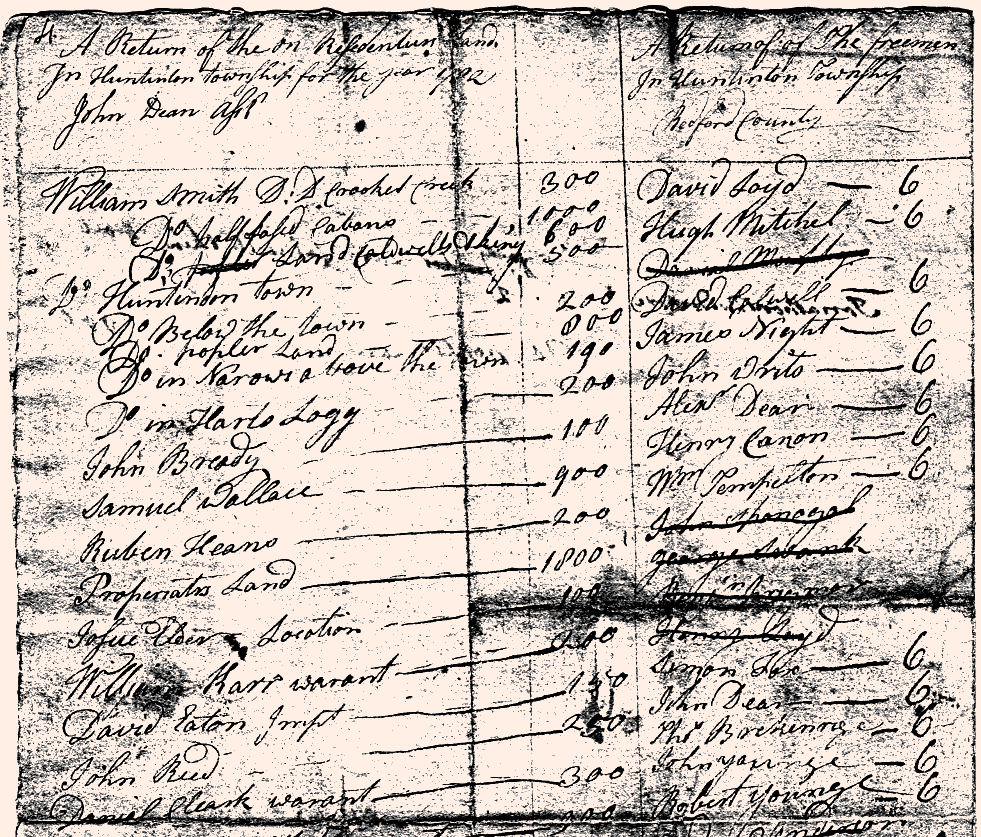 A Return of the on Residentun Land
In Huntinton township for the year 1782
John Dean Assr
William Smith D.D. Crooked Creek 300
Do half fased Cabans 1000
Do Land Coldwells
600
500
Do Huntindon town
Do Below the town 200
Do popler Land 800
Do in Narows a bove the town 190
Do in Harts Logg 200
John Bready 100
Samuel Wallace 900
Ruben Heans 200
Properiatrs Land 1800
Josue Elder Location 100
William Karr warant
David Eaton Impt 150
John Reed 250
Daniel Cleark warant 300
A Return of of The freemen
In Huntinton Township
Bedford County
David Loyd 6
Hugh Mitchel 6
David 6
James Night 6
John Drito 6
Alexr Dean 6
Henry Canon 6
Wm Tempelton 6
John
george Swank
Henry Loyd
Simon 6
John Dean 6
Thos 6
John younge 6
Robert younge 6